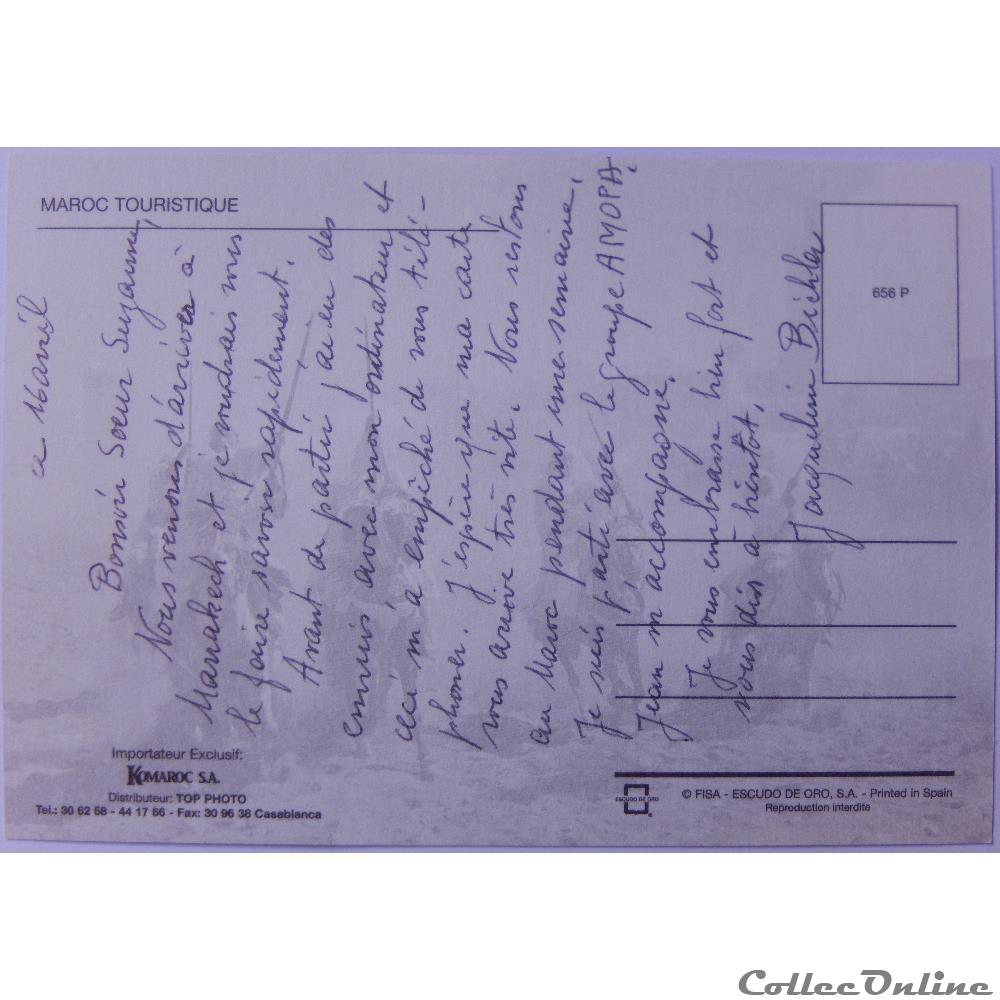 MAROC TOURISTIQUE
656 P
ce 16 avril
Bonsoir Soeur Suzanne,
Nous venons d'arriver à
Marrakech et je voudrais vous
le faire savoir rapidement.
Avant de partir j'ai eu des
ennuis avec mon ordinateur et
ceci m'a empêché de vous télé-
phoner. J'espère que ma carte
vous arrive très vite. Nous restons
au Maroc pendant une semaine.
Je suis partie avec le groupe AMOPA.
Jean m'accompagne.
Je vous embrasse bien fort et
vous dis à bientôt.
Jacqueline
Importateur Exclusif:
KOMAROC S.A.
Distributeur: TOP PHOTO
Tel.: 30 62 58 - 44 17 66 - Fax: 30 96 38 Casablanca
ESCUDO DE ORO
© FISA - ESCUDO DE ORO, S.A. - Printed in Spain
Reproduction interdite
CollecOnline